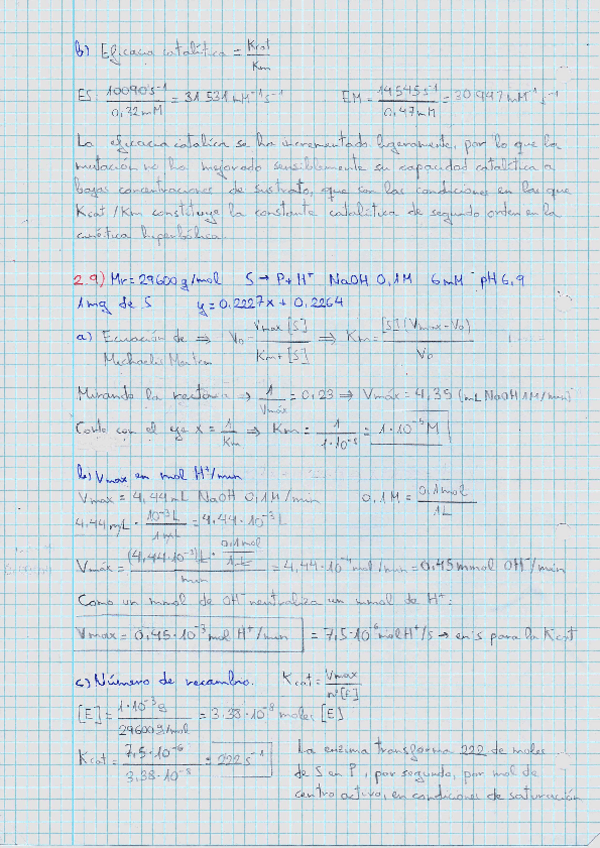 b) Eficacia catalítica = Kcat / Km
ES: 10090 s⁻¹ / 0,32 mM = 31 531 mM⁻¹s⁻¹ EM = 14545 s⁻¹ / 0,47 mM = 30 947 mM⁻¹s⁻¹
La eficacia catalica se ha incrementado ligeramente, por lo que la
mutación no ha mejorado sensiblemente su capacidad catalítica a
bajas concentraciones de sustrato, que son las condiciones en las que
Kcat/Km constituye la constante catalítica de segundo orden en la
cinética hiperbólica.
2.9) Mr = 29600 g/mol S → P + H⁺ NaOH 0,1M 6 mM pH 6,9
1 mg de S y = 0,2227x + 0,2264
a) Ecuación de ⇒ V₀ = Vmax [S] / Km + [S] ⇒ Km = [S] (Vmax - V₀) / V₀
Michaelis Menten
Mirando la recta ⇒ 1 / Vmáx = 0,23 ⇒ Vmáx = 4,35 (mL NaOH 1M/min)
Corte con el eje x = 1 / Km ⇒ Km = 1 / 1·10⁻⁵ = 1·10⁻⁵ M
b) Vmax en mol H⁺/min
Vmax = 4,44 mL NaOH 0,1M/min 0,1M = 0,1 mol / 1L
4,44 mL · 10⁻³ L / 1 mL = 4,44·10⁻³ L
Vmáx = (4,44·10⁻³) L · 0,1 mol / 1L / min = 4,44·10⁻⁴ mol/min = 0,45 mmol OH⁻/min
Como un mmol de OH⁻ neutraliza un mmol de H⁺:
Vmax = 0,45·10⁻³ mol H⁺/min = 7,5·10⁻⁶ mol H⁺/s → en s para la Kcat
c) Número de recambio. Kcat = Vmax / nº[E]
[E] = 1·10⁻³ g / 29600 g/mol = 3,38·10⁻⁸ moles [E]
Kcat = 7,5·10⁻⁶ / 3,38·10⁻⁸ = 222 s⁻¹ La enzima transforma 222 de moles
de S en P, por segundo, por mol de
centro activo, en condiciones de saturación